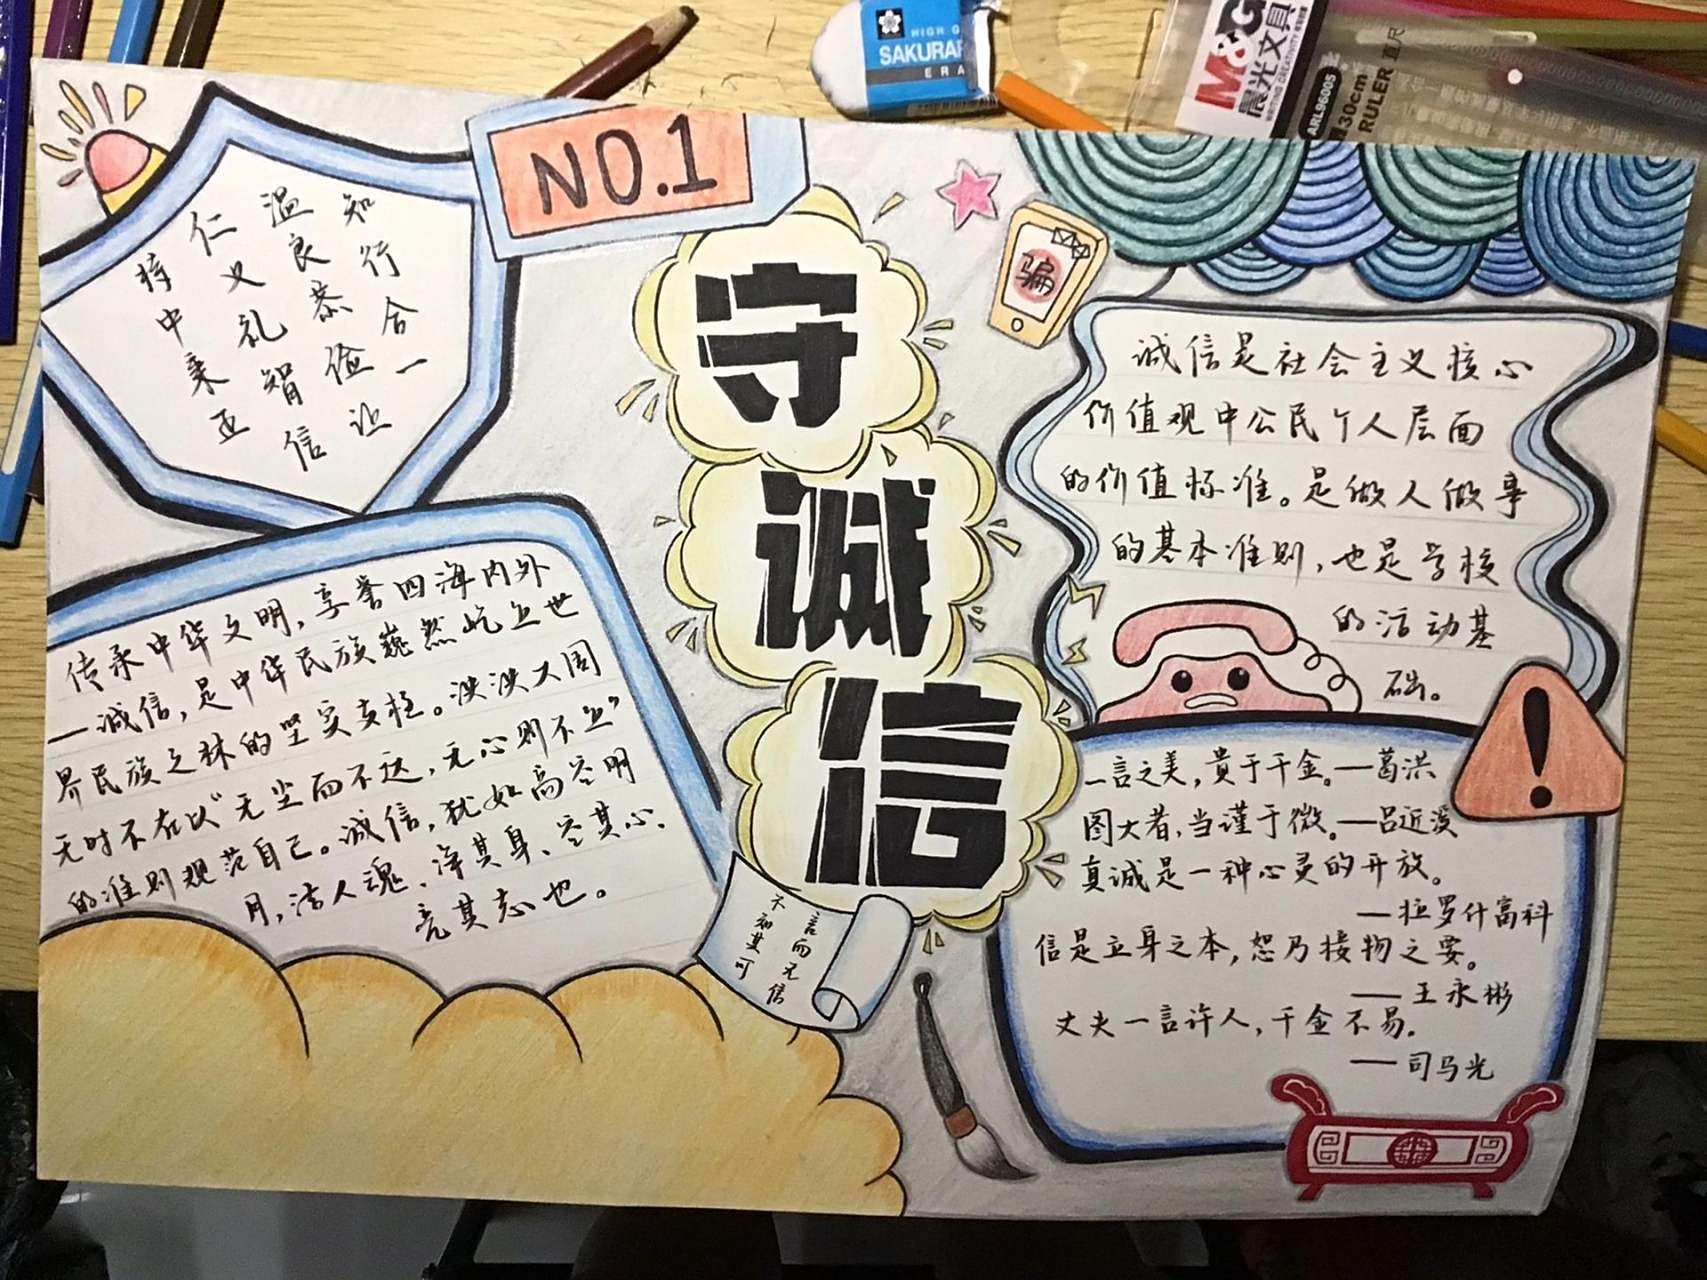 NO.1
守
诚
信
骗
知行合一
温良恭俭让
仁义礼智信
持中秉正
传承中华文明，享誉四海内外
—诚信，是中华民族巍然屹立世
界民族之林的坚实支柱。泱泱大国
无时不在以“无尘而不达，无心则不立”
的准则规范自己。诚信，犹如高空明
月，洁人魂、净其身、空其心、
亮其志也。
言而无信
不知其可
诚信是社会主义核心
价值观中公民个人层面
的价值标准。是做人做事
的基本准则，也是学校
的活动基
础。
一言之美，貴于千金。—葛洪
图大者，当谨于微。—吕近溪
真诚是一种心灵的开放。
—拉罗什高科
信是立身之本，恕乃接物之要。
—王永彬
丈夫一言许人，千金不易。
—司马光
HIGH
SAKURA
ERA
M&G
晨光文具
ARL96005
30cm
RULER 直尺